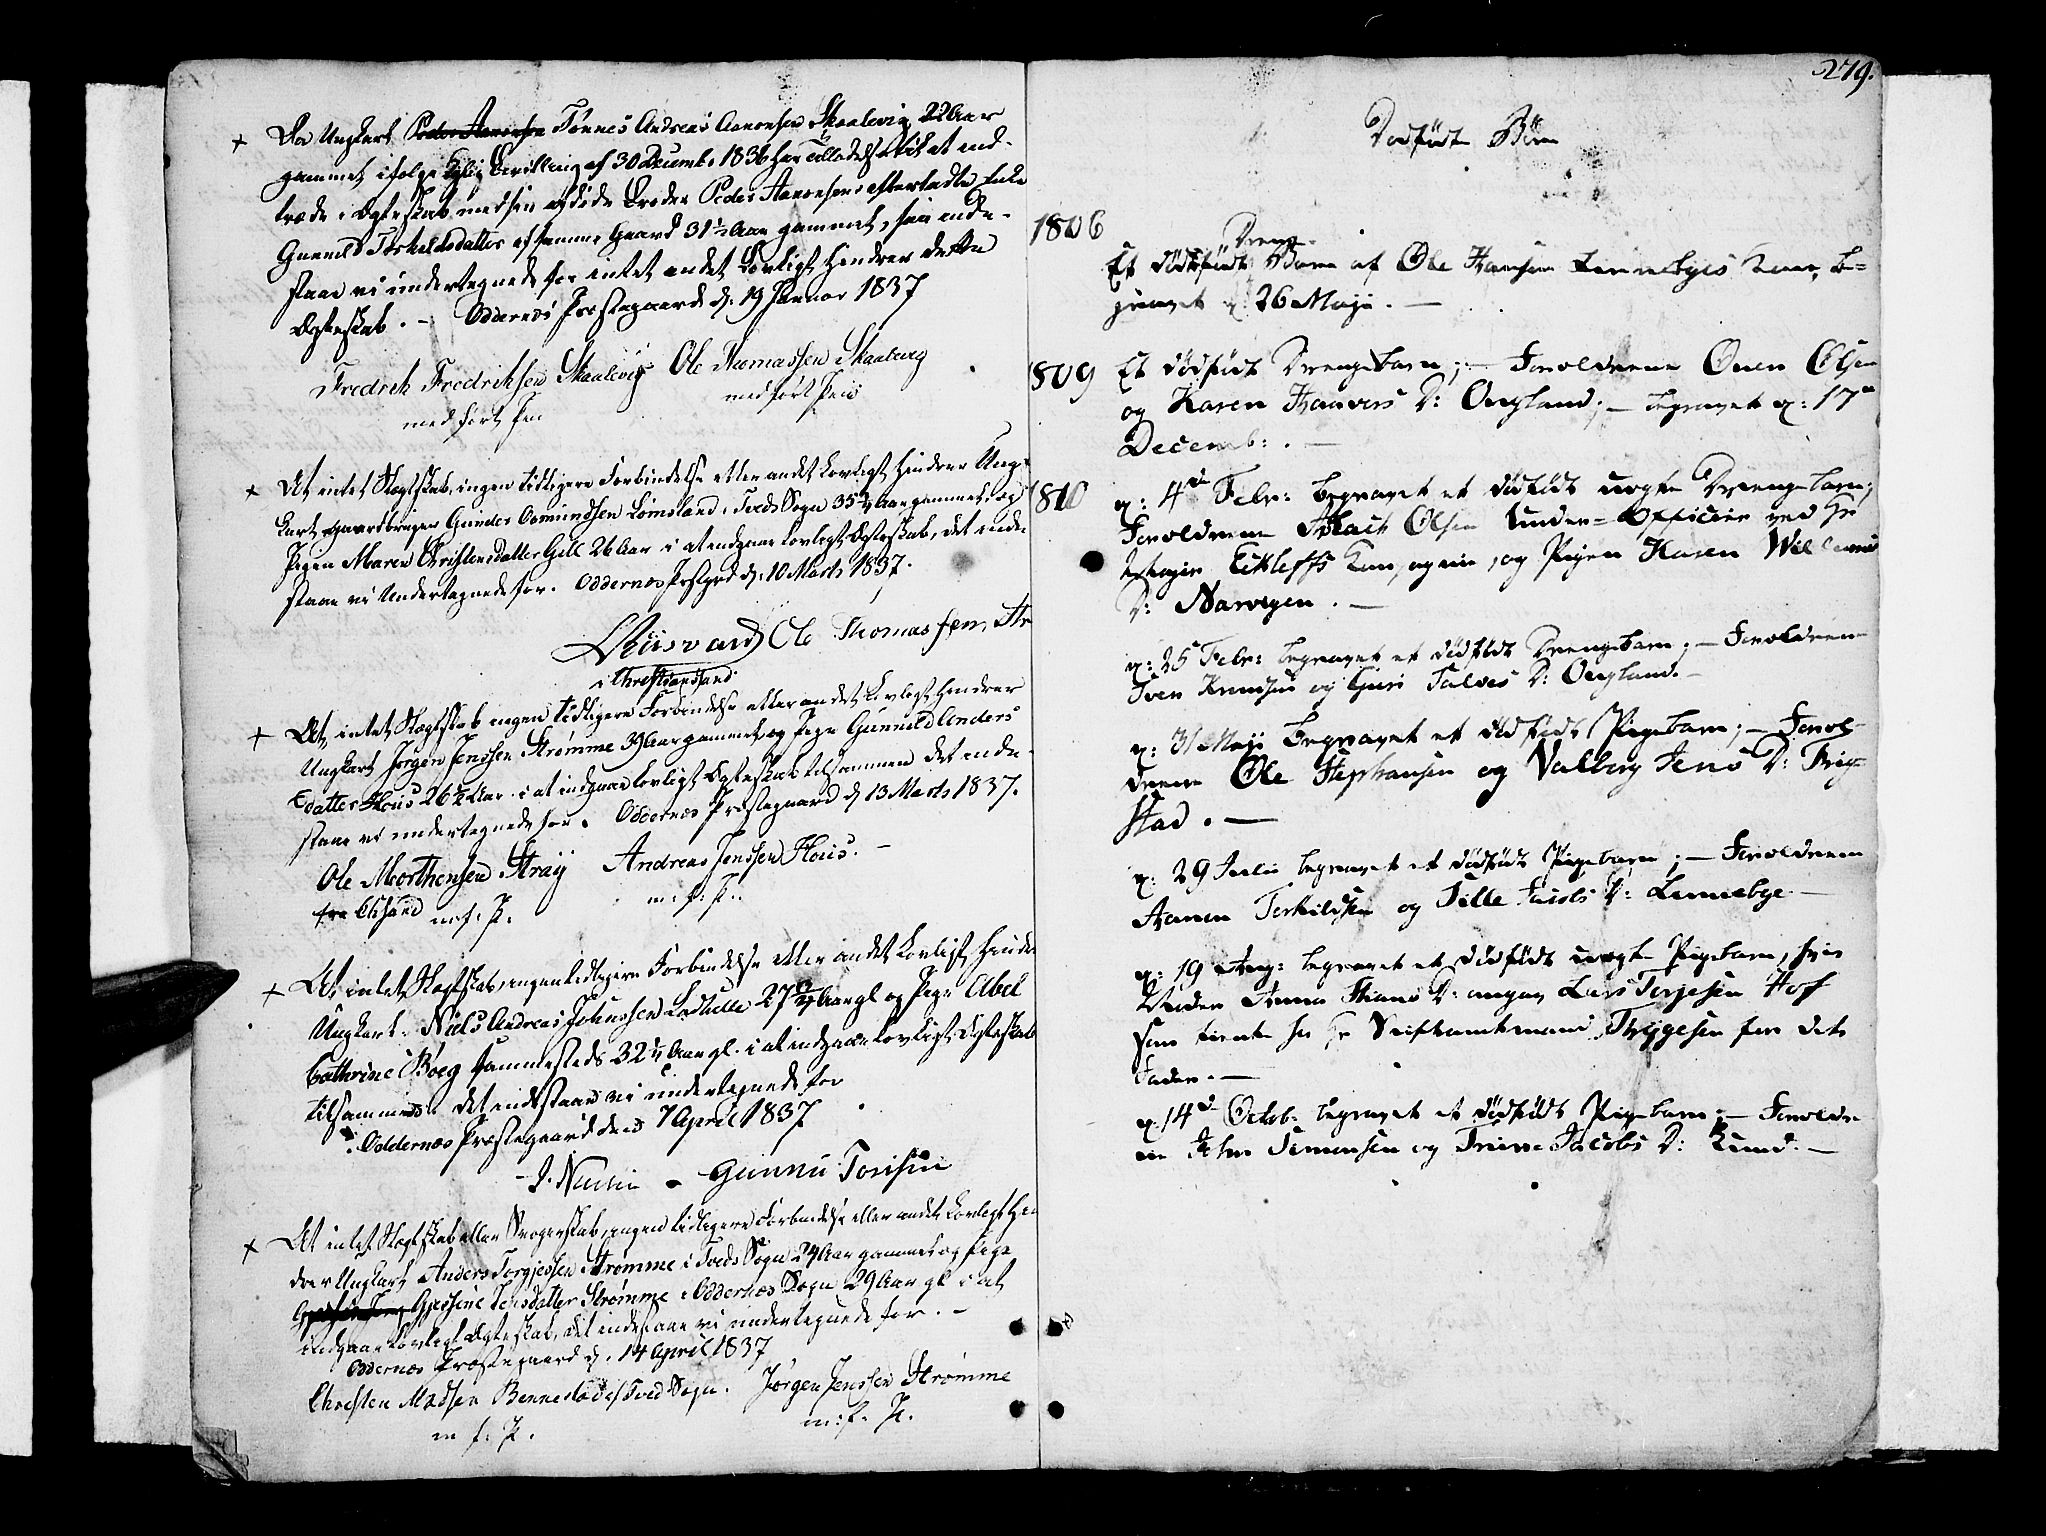 Da Ungkarl Peder Aanonsen Tønnes Andreas Aanonsen Skaalevig 22 Aar
gammel ifølge Kglig Bevilling af 30 Decembr 1836 har Tilladelse til at ind-
træde i Ægteskab med sin afdøde Broder Peder Aanonsens efterladte Enke
Gunnild Terkeldsdatter af samme Gaard 31½ Aar gammel, saa inde-
staae vi undertegnede for intet andet Lovligt hindrer dette
Ægteskab. - Oddernes Præstegaard d: 19 Januar 1837
Fredrik Fredriksen Skaalevig Ole Thomassen Skaalevig
med ført Pen med ført Pen
At intet Slægtskab, ingen tidligere Forbindelse eller andet Lovligt hindrer Ung-
karl gaardbruger Gunder Osmundsen Lomsland i Tveds Sogn 35 Aar gammel og
Pigen Maren Christensdatter Gill 26 Aar i at indgaae lovligt Ægteskab, det inde-
staae vi Undertegnede for. Oddernes Præstgrd d: 10 Marts 1837.
Ole Thomassen, Str
i Christiansand
At intet Slægtskab ingen tidligere Forbindelse eller andet Lovligt hindrer
Ungkarl Jørgen Jenssen Strømme 39 Aar gammel og Pige Gunnild Anders
datter Hous 26½ Aar i at indgaae lovligt Ægteskab tilsammen det inde-
staae vi undertegnede for. Oddernes Præstegaard d 13 Marts 1837.
Ole Morthensen Straij Andreas Jenssen Hous. -
fra Chsand m: f: P. m: f: P.
At intet Slægtskab, ingen tidligere Forbindelse eller andet Lovligt hinder
Ungkarl Niels Andreas Johnssen Lodtulle 27 Aar gl og Pige Abel
Cathrine Boeg sammesteds 32 Aar gl. i at indgaae lovligt Ægteskab
tilsammen. det indestaae vi undertegnede for
Oddernes Præstegaard den 7 April 1837
Gunnu Torisen
At intet Slægtskab eller Svogerskab, ingen tidligere Forbindelse eller andet Lovligt hin
drer Ungkarl Anders Torgjessen Strømme i Tveds Sogn 24 Aar gammel og Pige
Gjessine Jensdatter Strømme i Oddernes Sogn 29 Aar gl i at
indgaae Lovligt Ægteskab, det indestaae vi undertegnede for. -
Oddernes Præstegaard d. 14 April 1837
Christen Madsen Bennestad i Tved Sogn. Jørgen Jenssen Strømme
m f. P. m: f. P.
279.
Dødfødte Børn
1806
Drenge-
Et dødfødt Barn af Ole Hansen Linnebyes Kone, be-
gravet d: 26 Maji. -
1809 Et dødfødt Drengebarn; - Forældrene Önen Olsen
og Karen Haavors D: Ongland; - begravet d: 17de
Decemb: . -
1810 d: 4de Febr: begravet et dødfødt uægte Drengebarn;
Forældrene Aslack Olsen Under-Officier ved Hr
Eckleffs Compagnie, og Pigen Karen Willums
D: Narvigen. -
d: 25 Febr: begravet et dødfødt Drengebarn. - Forældrene
Sven Knudsen og Guri Talvs D: Ongland. -
d: 31 Maji begravet et dødfødt Pigebarn; - Foræl-
drene Ole Stephansen og Valborg Jens D: Trig-
stad. -
d: 29 Julii begravet et dødfødt Pigebarn; - Forældrene
Aanen Terkildsen og Sille Jacobs D: Linnebye. -
d: 19 Aug: begravet et dødfødt uægte Pigebarn, hvis
Moder Anna Stians D: angav Lars Terjesen Hof
som tiente hos Hr Stiftamtmand Thygesen for dets
Fader. -
d: 14de Octob: begravet et dødfødt Pigebarn. - Forældre
ne John Simonsen og Trine Jacobs D: Lund. -